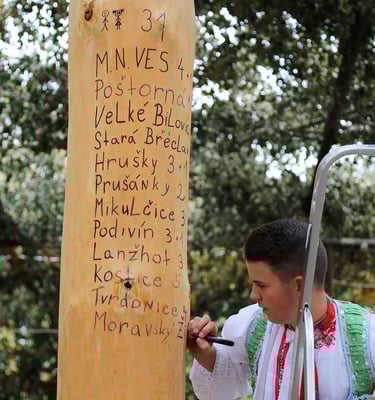 31
M.N. VES 4
Poštorná
Velké Bílovice
Stará Břeclav
Hrušky 3+1
Prušánky 2
Mikulčice 3
Podivín 3+1
Lanžhot 3
Kostice 5
Tvrdonice
Moravský Ž